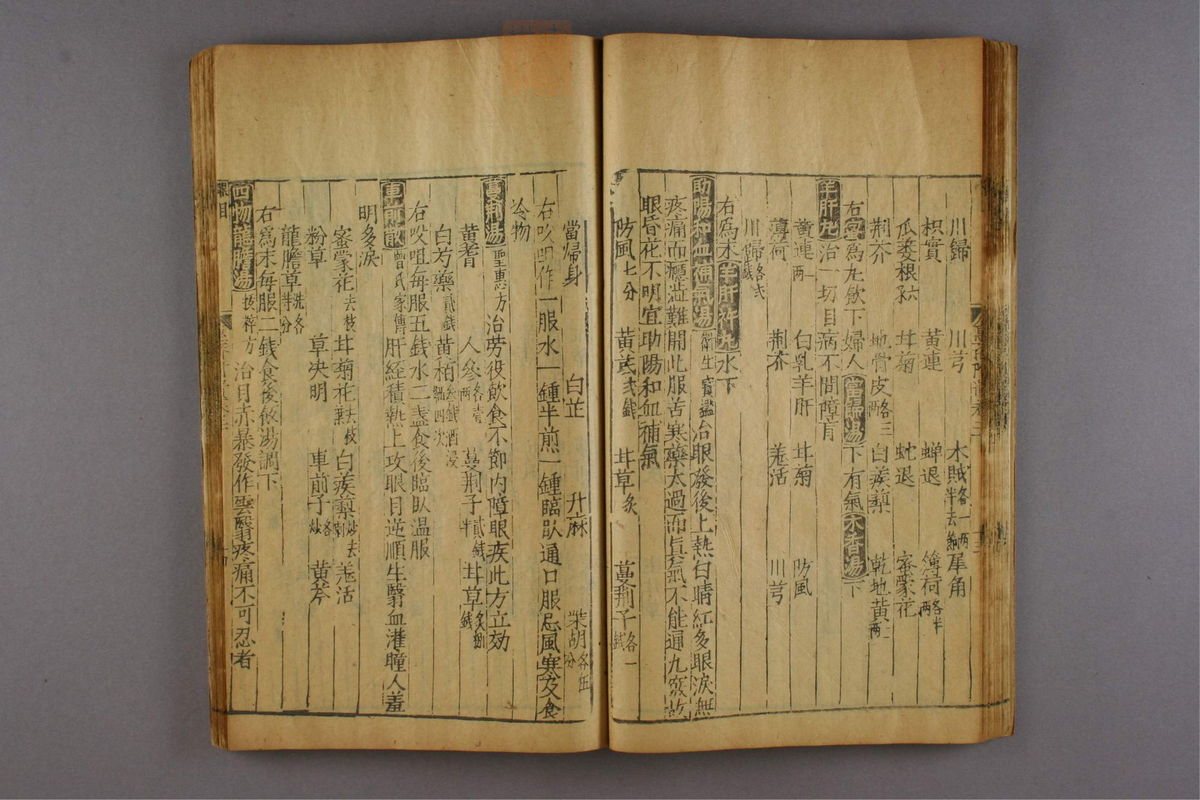 川歸 川芎 木賊各一兩半去節 犀角
枳實 黃連 蟬退 薄荷各半兩
瓜蔞根 甘菊 蛇退 密蒙花
荊芥 地骨皮各三兩 白蒺藜 乾地黃一兩
右為丸飲下婦人當歸湯下有氣木香湯下
羊肝丸治一切目病不問障盲
黃連一兩 白乳羊肝 甘菊 防風
薄荷 荊芥 羗活 川芎
川歸各弍錢
右為末羊肝汁丸水下
助陽和血補氣湯衛生寶鑑治眼發後上熱白睛紅多眼淚無
疼痛而癮澁難開此服苦寒藥太過而眞氣不能通九竅故
眼昏花不明宜助陽和血補氣
防風七分 黃芪弍錢 甘草炙 蔓荊子各一錢
當歸身 白芷 升麻 柴胡各伍分
右㕮咀作一服水一鍾半煎一鍾臨臥通口服忌風寒及食
冷物
蔓荊湯聖惠方治勞役飲食不節內障眼疾此方立効
黃耆 人參各壹兩 蔓荊子貳錢半 甘草炙捌錢
白芍藥貳錢 黃柏叁錢酒浸四次
右㕮咀每服五錢水二盞食後臨臥温服
車前散曾氏家傳肝経積熱上攻眼目逆順生翳血灌瞳人羞
明多淚
密蒙花去枝 甘菊花去枝 白蒺藜炒去刺 羗活
粉草 草决明 車前子各炒 黃芩
龍膽草洗各半分
右為末每服二錢食後飲湯調下
四物龍膽湯拔粹方治目赤暴發作雲翳疼痛不可忍者